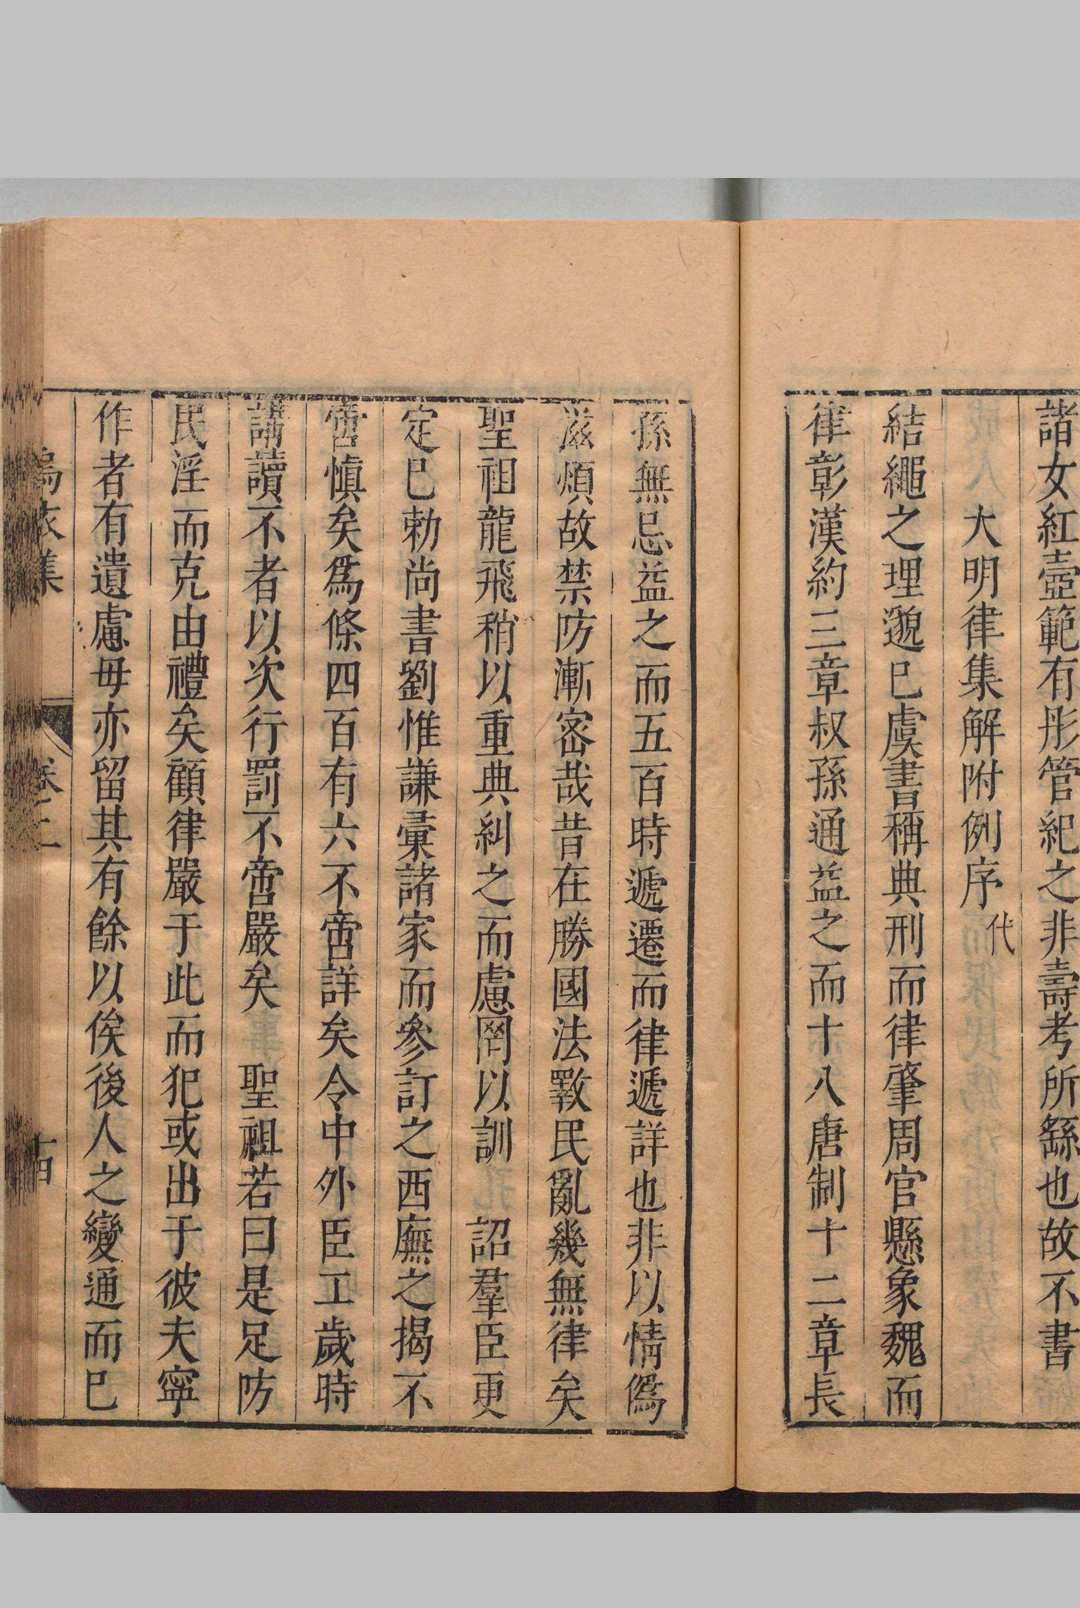 諸女紅壺範有彤管紀之非壽考所繇也故不書
大明律集解附例序代
結繩之理邈已虞書稱典刑而律肇周官懸象魏而
律彰漢約三章叔孫通益之而十八唐制十二章長
孫無忌益之而五百時遞遷而律遞詳也非以情僞
滋煩故禁防漸密哉昔在勝國法斁民亂幾無律矣
聖祖龍飛稍以重典糾之而慮罔以訓　詔羣臣更
定已勅尚書劉惟謙彙諸家而參訂之西廡之揭不
啻慎矣爲條四百有六不啻詳矣令中外臣工歲時
講讀不者以次行罰不啻嚴矣　聖祖若曰是足防
民淫而克由禮矣顧律嚴于此而犯或出于彼夫寧
作者有遺慮毋亦留其有餘以俟後人之變通而已
卷之二